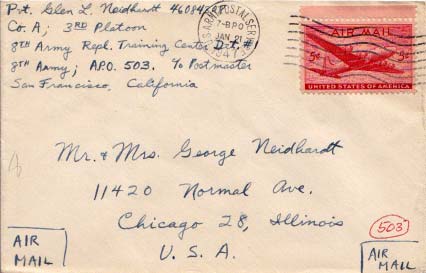 Pvt. Glen L. Neidhardt
Co. A; 3RD Platoon
8TH Army Repl. Training Center Det. #
8TH Army; A.P.O. 503. c/o Postmaster
San Francisco, California
U.S. ARMY POSTAL SERVICE
7-8 PM
JAN
1947
AIR MAIL
5¢ 5¢
UNITED STATES OF AMERICA
Mr. & Mrs. George Neidhardt
11420 Normal Ave.
Chicago 28, Illinois
U. S. A.
503
AIR
MAIL
AIR
MAIL